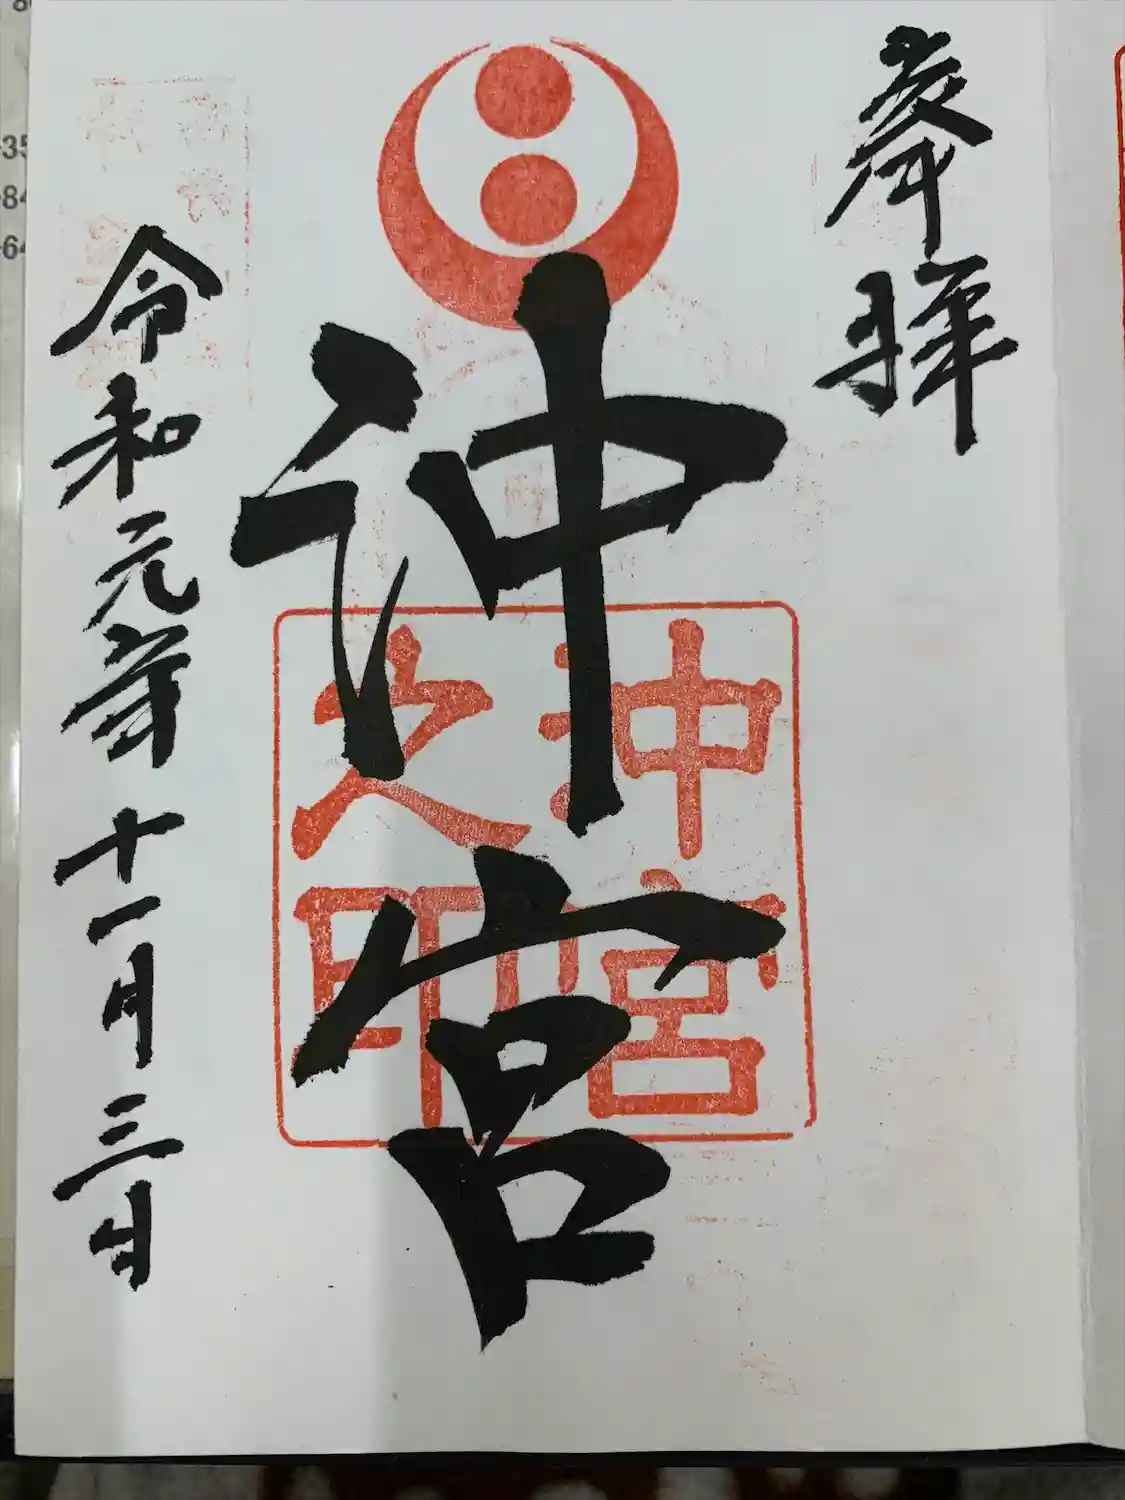 奉拝
沖宮
沖宮
之印
令和元年十一月三日